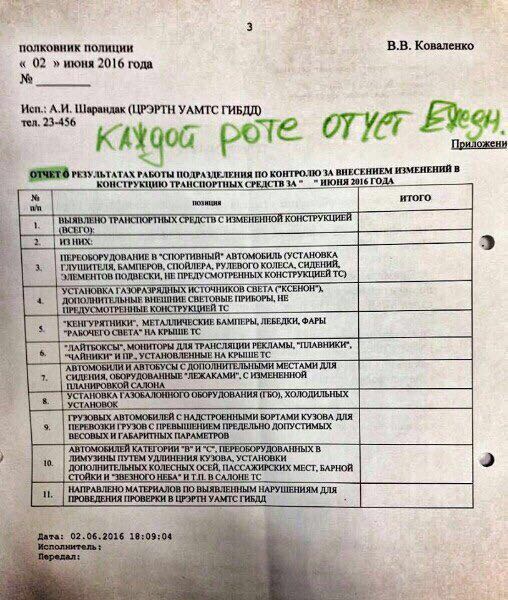 3
ПОЛКОВНИК ПОЛИЦИИ В.В. Коваленко
« 02 » июня 2016 года
№
Исп.: А.И. Шарандак (ЦРЭРТН УАМТС ГИБДД)
тел. 23-456
КАЖДОЙ РОТЕ ОТЧЕТ Ежедн.
Приложени
ОТЧЕТ О РЕЗУЛЬТАТАХ РАБОТЫ ПОДРАЗДЕЛЕНИЯ ПО КОНТРОЛЮ ЗА ВНЕСЕНИЕМ ИЗМЕНЕНИЙ В
КОНСТРУКЦИЮ ТРАНСПОРТНЫХ СРЕДСТВ ЗА " " ИЮНЯ 2016 ГОДА
№ п/п позиция ИТОГО
1. ВЫЯВЛЕНО ТРАНСПОРТНЫХ СРЕДСТВ С ИЗМЕНЕННОЙ КОНСТРУКЦИЕЙ
(ВСЕГО):
2. ИЗ НИХ:
3. ПЕРЕОБОРУДОВАНИЕ В "СПОРТИВНЫЙ" АВТОМОБИЛЬ (УСТАНОВКА
ГЛУШИТЕЛЯ, БАМПЕРОВ, СПОЙЛЕРА, РУЛЕВОГО КОЛЕСА, СИДЕНИЙ,
ЭЛЕМЕНТОВ ПОДВЕСКИ, НЕ ПРЕДУСМОТРЕННЫХ КОНСТРУКЦИЕЙ ТС)
4. УСТАНОВКА ГАЗОРАЗРЯДНЫХ ИСТОЧНИКОВ СВЕТА ("КСЕНОН"),
ДОПОЛНИТЕЛЬНЫЕ ВНЕШНИЕ СВЕТОВЫЕ ПРИБОРЫ, НЕ
ПРЕДУСМОТРЕННЫЕ КОНСТРУКЦИЕЙ ТС
5. "КЕНГУРЯТНИКИ", МЕТАЛЛИЧЕСКИЕ БАМПЕРЫ, ЛЕБЕДКИ, ФАРЫ
"РАБОЧЕГО СВЕТА" НА КРЫШЕ ТС
6. "ЛАЙТБОКСЫ", МОНИТОРЫ ДЛЯ ТРАНСЛЯЦИИ РЕКЛАМЫ, "ПЛАВНИКИ",
"ЧАЙНИКИ" И ПР., УСТАНОВЛЕННЫЕ НА КРЫШЕ ТС
7. АВТОМОБИЛИ И АВТОБУСЫ С ДОПОЛНИТЕЛЬНЫМИ МЕСТАМИ ДЛЯ
СИДЕНИЯ, ОБОРУДОВАННЫЕ "ЛЕЖАКАМИ", С ИЗМЕНЕННОЙ
ПЛАНИРОВКОЙ САЛОНА
8. УСТАНОВКА ГАЗОБАЛОННОГО ОБОРУДОВАНИЯ (ГБО), ХОЛОДИЛЬНЫХ
УСТАНОВОК
9. ГРУЗОВЫХ АВТОМОБИЛЕЙ С НАДСТРОЕННЫМИ БОРТАМИ КУЗОВА ДЛЯ
ПЕРЕВОЗКИ ГРУЗОВ С ПРЕВЫШЕНИЕМ ПРЕДЕЛЬНО ДОПУСТИМЫХ
ВЕСОВЫХ И ГАБАРИТНЫХ ПАРАМЕТРОВ
10. АВТОМОБИЛЕЙ КАТЕГОРИИ "В" И "С", ПЕРЕОБОРУДОВАННЫХ В
ЛИМУЗИНЫ ПУТЕМ УДЛИНЕНИЯ КУЗОВА, УСТАНОВКИ
ДОПОЛНИТЕЛЬНЫХ КОЛЕСНЫХ ОСЕЙ, ПАССАЖИРСКИХ МЕСТ, БАРНОЙ
СТОЙКИ И "ЗВЕЗДНОГО НЕБА" И Т.П. В САЛОНЕ ТС
11. НАПРАВЛЕНО МАТЕРИАЛОВ ПО ВЫЯВЛЕННЫМ НАРУШЕНИЯМ ДЛЯ
ПРОВЕДЕНИЯ ПРОВЕРКИ В ЦРЭРТН УАМТС ГИБДД
Дата: 02.06.2016 18:09:04
Исполнитель:
Передал: